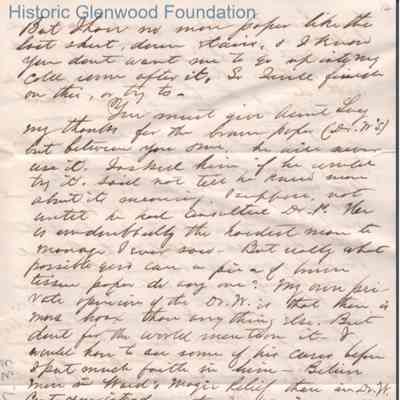 Historic Glenwood Foundation
But I have no more paper like the
last sheet, down stairs, & I know
you don't want me to go up into my
cold room after it, So I will finish
on this, or try to -
You must give Aunt Lucy
my thanks for the brown paper (Dr. W's)
but between you & me he will never
use it. I asked him if he would
try it. Said not till he knew more
about its meaning, I suppose, not
until he had consulted Dr. P. He
is undoubtedly the hardest man to
manage I ever saw. But really what
possible good can a piece of brown
tissue paper do any one? My own pri
vate opinion of the Dr. W. is that there is
more hoax than anything else. But
don't for the world mention it. I
would have to see some of his cures before
I put much faith in him - Believe
more in Ward's Magic Relief than in Dr. W.
But